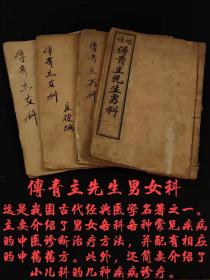 傅青主女科
傅青主女科
產後編
傅青主男科
傅青主先生男科
傅青主先生男女科
这是我国古代经典医学名著之一。
主要介绍了男女科各种常见疾病
的中医诊断治疗方法，并配有相应
的中药药方。此外，还简要介绍了
小儿科的几种疾病诊疗。